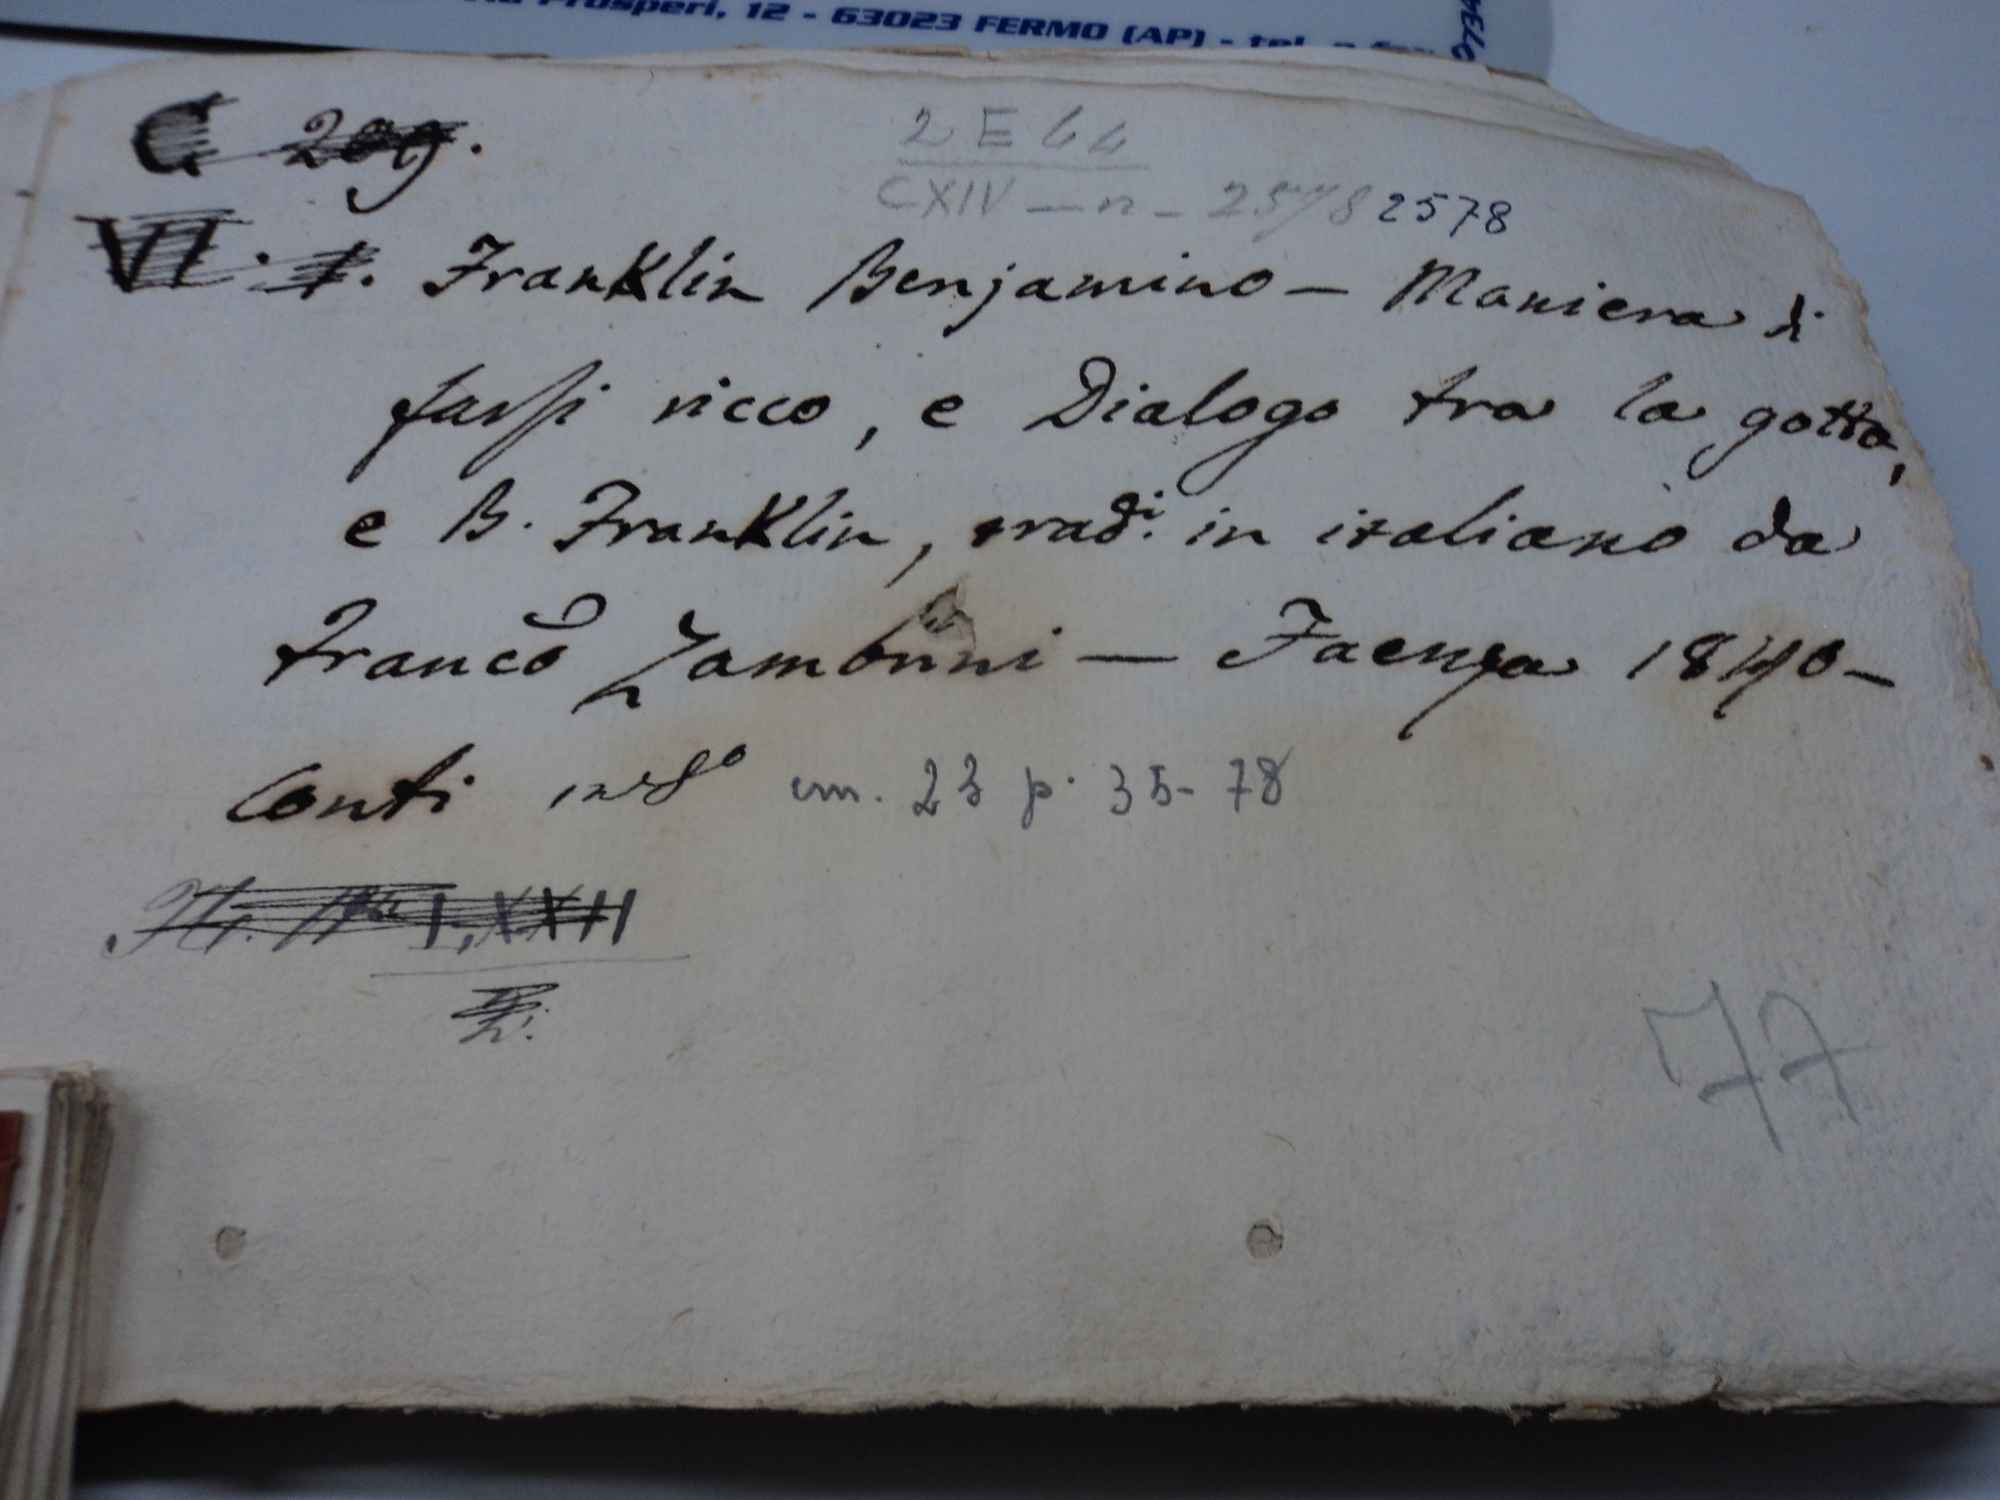 Prosperi, 12 - 63023 FERMO (AP) - tel. e fax
0734
C 209.
2 E 44
CXIV — n - 2578 2578
VI. 1. Franklin Benjamino — Maniera di
farsi ricco, e Dialogo tra la gotta,
e B. Franklin, trad.i in italiano da
Franco Zambrini — Faenza 1840 –
Conti in 8o cm. 23 p. 35-78
LXXII
77